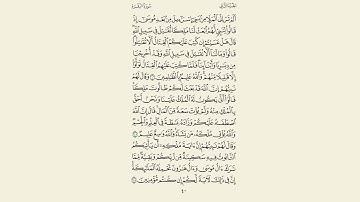 الجزء الثاني
سورة البقرة
أَلَمْ تَرَ إِلَى الْمَلَإِ مِنْ بَنِي إِسْرَائِيلَ مِنْ بَعْدِ مُوسَى إِذْ
قَالُوا لِنَبِيٍّ لَهُمُ ابْعَثْ لَنَا مَلِكًا نُقَاتِلْ فِي سَبِيلِ اللَّهِ
قَالَ هَلْ عَسَيْتُمْ إِنْ كُتِبَ عَلَيْكُمُ الْقِتَالُ أَلَّا تُقَاتِلُوا
قَالُوا وَمَا لَنَا أَلَّا نُقَاتِلَ فِي سَبِيلِ اللَّهِ وَقَدْ أُخْرِجْنَا
مِنْ دِيَارِنَا وَأَبْنَائِنَا فَلَمَّا كُتِبَ عَلَيْهِمُ الْقِتَالُ تَوَلَّوْا
إِلَّا قَلِيلًا مِنْهُمْ وَاللَّهُ عَلِيمٌ بِالظَّالِمِينَ ٢٤٦ وَقَالَ لَهُمْ
نَبِيُّهُمْ إِنَّ اللَّهَ قَدْ بَعَثَ لَكُمْ طَالُوتَ مَلِكًا
قَالُوا أَنَّى يَكُونُ لَهُ الْمُلْكُ عَلَيْنَا وَنَحْنُ أَحَقُّ
بِالْمُلْكِ مِنْهُ وَلَمْ يُؤْتَ سَعَةً مِنَ الْمَالِ قَالَ إِنَّ اللَّهَ
اصْطَفَاهُ عَلَيْكُمْ وَزَادَهُ بَسْطَةً فِي الْعِلْمِ وَالْجِسْمِ
وَاللَّهُ يُؤْتِي مُلْكَهُ مَنْ يَشَاءُ وَاللَّهُ وَاسِعٌ عَلِيمٌ ٢٤٧
وَقَالَ لَهُمْ نَبِيُّهُمْ إِنَّ آيَةَ مُلْكِهِ أَنْ يَأْتِيَكُمُ
التَّابُوتُ فِيهِ سَكِينَةٌ مِنْ رَبِّكُمْ وَبَقِيَّةٌ مِمَّا
تَرَكَ آلُ مُوسَى وَآلُ هَارُونَ تَحْمِلُهُ الْمَلَائِكَةُ
إِنَّ فِي ذَلِكَ لَآيَةً لَكُمْ إِنْ كُنْتُمْ مُؤْمِنِينَ ٢٤٨
٤٠